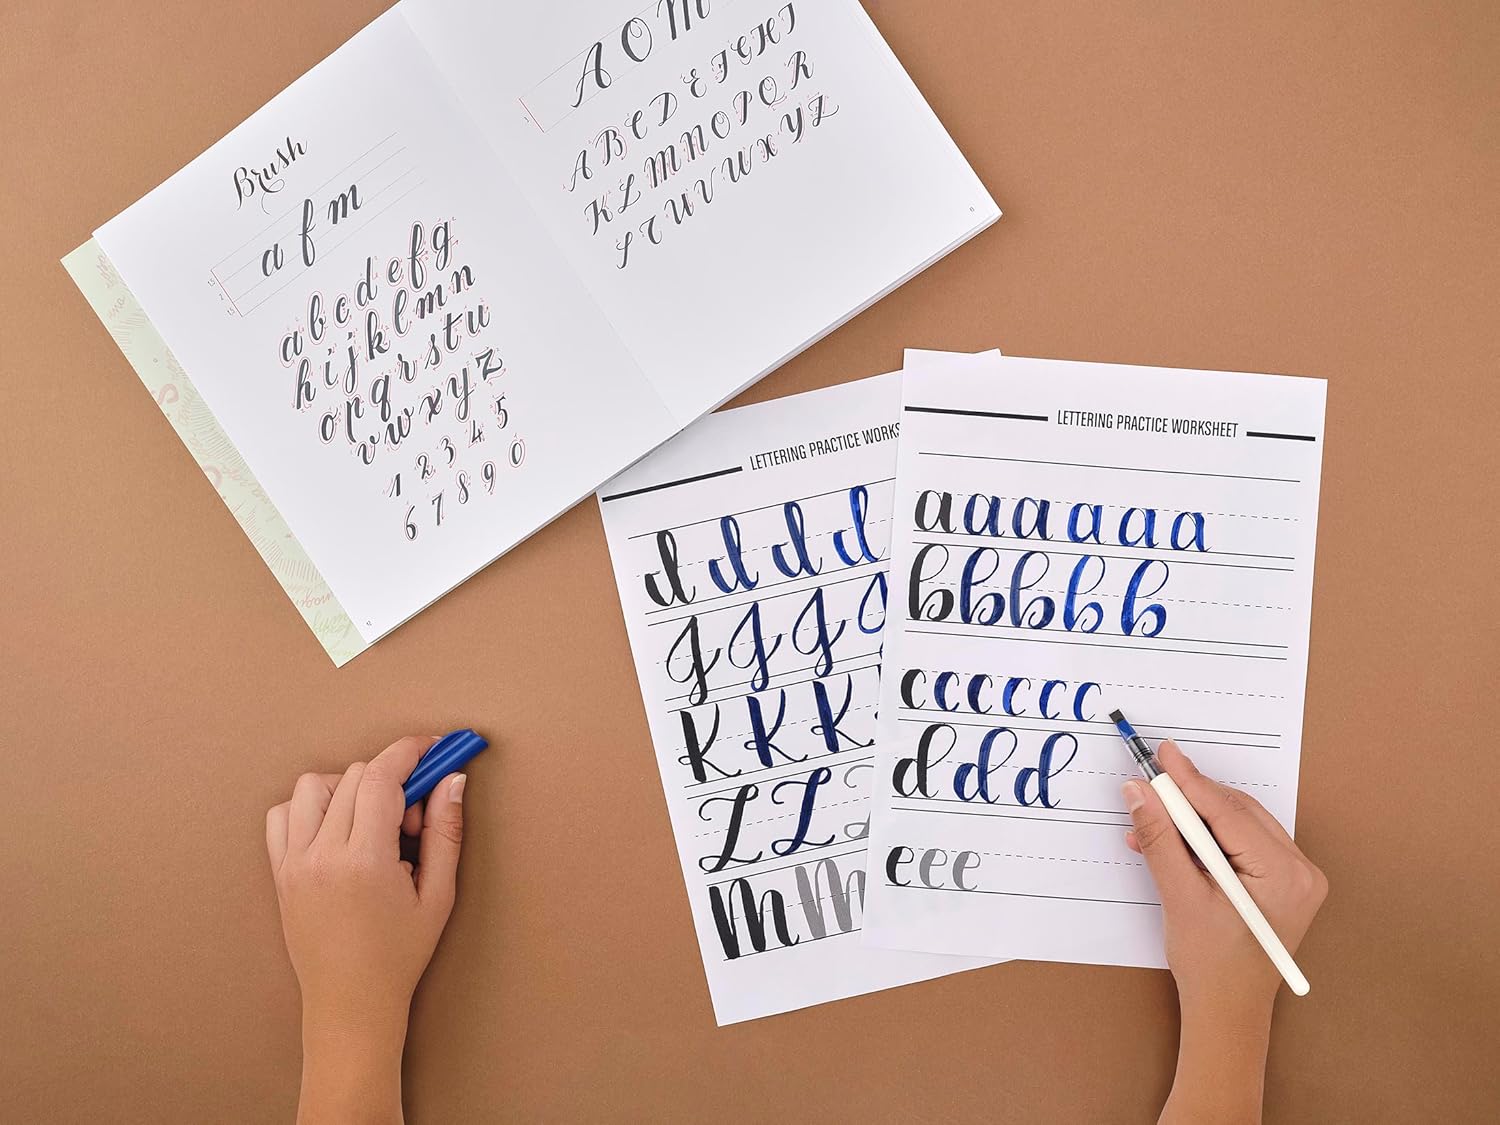 Brush
a f m
1,5
2
1,5
a b c d e f g
h i j k l m n
o p q r s t u
v w x y z
1 2 3 4 5
6 7 8 9 0
12
A O M
A B C D E F G H I
K L M N O P Q R
S T U V W X Y Z
LETTERING PRACTICE WORKS
d d d d
J J J J
K K K
L L L
M M
LETTERING PRACTICE WORKSHEET
a a a a a a
b b b b b
c c c c c c
d d d
e e e